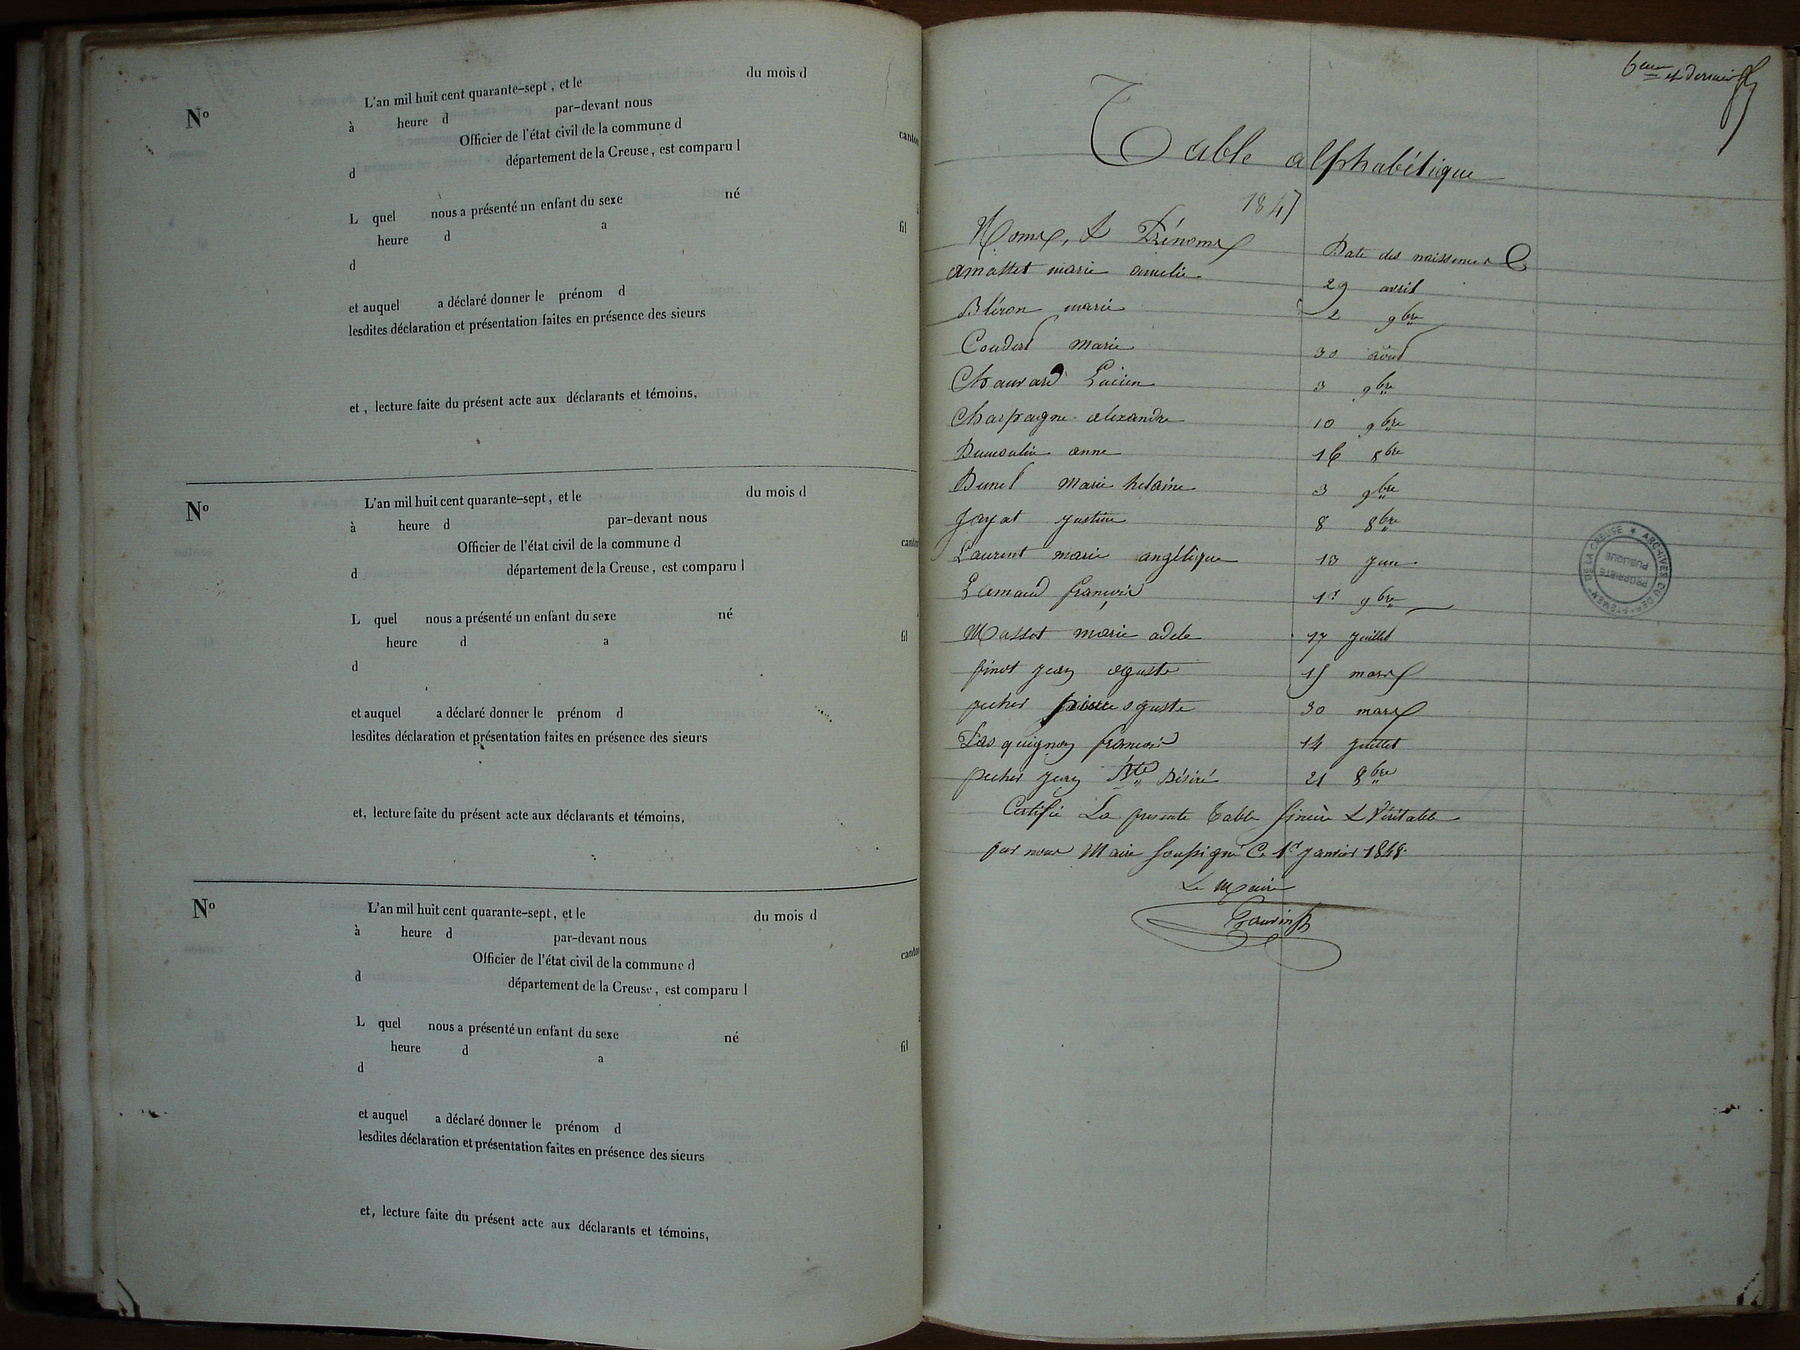 Nº
L'an mil huit cent quarante-sept, et le du mois d
à heure d par-devant nous
Officier de l'état civil de la commune d canton
d département de la Creuse, est comparu l
L quel nous a présenté un enfant du sexe né
heure d a fil
d
et auquel a déclaré donner le prénom d
lesdites déclaration et présentation faites en présence des sieurs
et, lecture faite du présent acte aux déclarants et témoins,
Nº
L'an mil huit cent quarante-sept, et le du mois d
à heure d par-devant nous
Officier de l'état civil de la commune d canton
d département de la Creuse, est comparu l
L quel nous a présenté un enfant du sexe né
heure d a fil
d
et auquel a déclaré donner le prénom d
lesdites déclaration et présentation faites en présence des sieurs
et, lecture faite du présent acte aux déclarants et témoins,
Nº
L'an mil huit cent quarante-sept, et le du mois d
à heure d par-devant nous
Officier de l'état civil de la commune d canton
d département de la Creuse, est comparu l
L quel nous a présenté un enfant du sexe né
heure d a fil
d
et auquel a déclaré donner le prénom d
lesdites déclaration et présentation faites en présence des sieurs
et, lecture faite du présent acte aux déclarants et témoins,
6eme et dernier
Table alphabétique
1847
Noms, & Prénoms Date des naissences
amattet marie amelie 29 avril
Bléron marie 2 9bre
Coudert marie 30 août
Chauvard Lucien 3 9bre
Charpagne alexandre 10 9bre
Dumoulin anne 16 8bre
Dunet Marie helaine 3 9bre
Jayat justine 8 8bre
Laurent marie angélique 13 juin
Lamaud francois 1r 9bre
Massot marie adele 17 juillet
pinot jean oguste 15 mars
pecher pierre oguste 30 mars
Pasquignon francois 14 juillet
pecher jean Bte Désiré 21 8bre
Certifié La presente Table sincère & Véritable
par nous Maire soussigné Ce 1er janvier 1848.
Le Maire
ARCHIVES DU DEPARTEMENT DE LA CREUSE
PROPRIETE PUBLIQUE